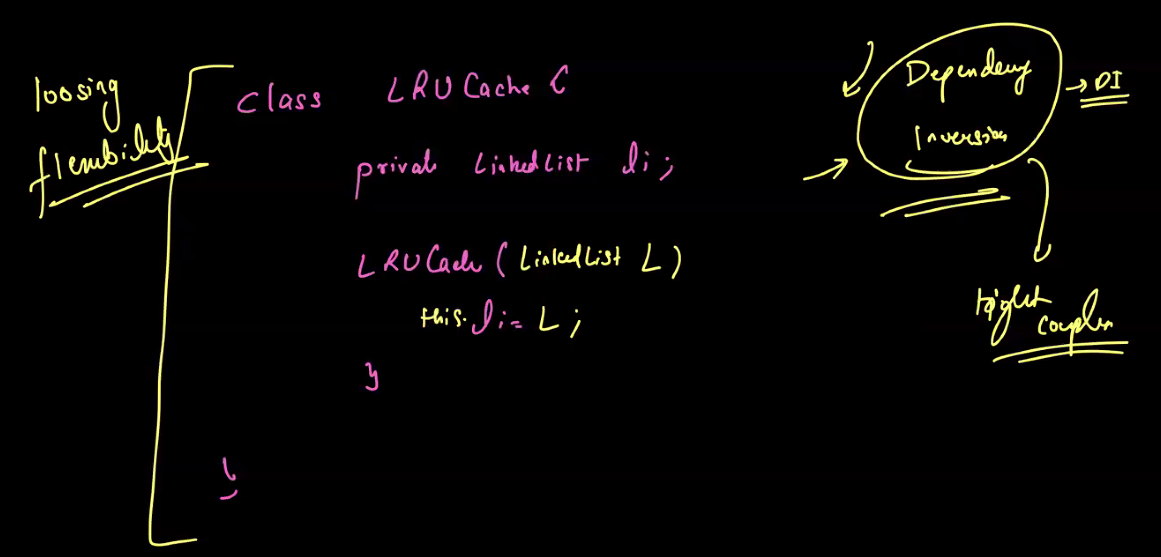 loosing
flexibility
class LRU Cache {
private LinkedList li;
LRUCache (LinkedList L)
this.li = L;
}
}
Dependency
Inversion
→ DI
tight